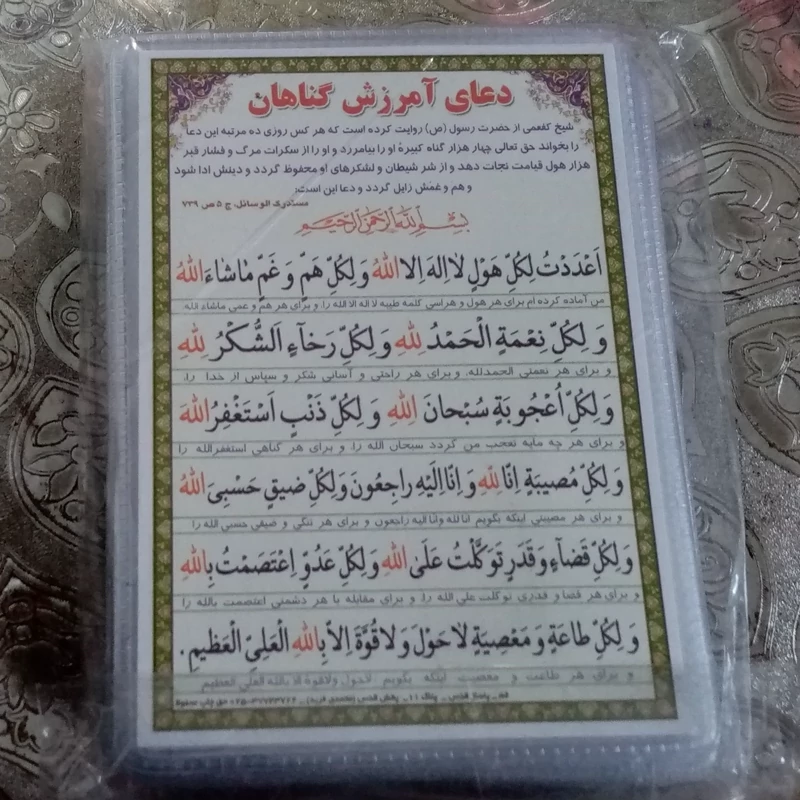 دعای آمرزش گناهان
شیخ کفعمی از حضرت رسول (ص) روایت کرده است که هر کس روزی ده مرتبه این دعا
را بخواند حق تعالی چهار هزار گناه کبیرهٔ او را بیامرزد و او را از سکرات مرگ و فشار قبر
هزار هول قیامت نجات دهد و از شر شیطان و لشکرهای او محفوظ گردد و دینش ادا شود
و هم و غمش زایل گردد و دعا این است:
مستدرک الوسائل، ج ۵ ص ۷۳۹
بِسْمِ اللهِ الرَّحْمنِ الرَّحیمِ
اَعْدَدْتُ لِکُلِّ هَوْلٍ لا اِلهَ اِلا اللهُ وَ لِکُلِّ هَمٍّ وَ غَمٍّ ماشاءَ اللهُ
من آماده کرده ام برای هر هول و هراسی کلمه طیبه لا اله الا الله را، و برای هر هم و غمی ماشاء الله
وَ لِکُلِّ نِعْمَةٍ اَلْحَمْدُ لِلّهِ وَ لِکُلِّ رَخآءٍ اَلشُّکْرُ لِلّهِ
و برای هر نعمتی الحمدلله، و برای هر راحتی و آسانی شکر و سپاس از خدا را،
وَ لِکُلِّ اُعْجُوبَةٍ سُبْحانَ اللهِ وَ لِکُلِّ ذَنْبٍ اَسْتَغْفِرُ اللهَ
و برای هر چه مایه تعجب من گردد سبحان الله را، و برای هر گناهی استغفرالله را
وَ لِکُلِّ مُصیبَةٍ اِنّا لِلّهِ وَ اِنّا اِلَیْهِ راجِعُونَ وَ لِکُلِّ ضیقٍ حَسْبِیَ اللهُ
و برای هر مصیبتی اینکه بگویم انا لله وانا الیه راجعون و برای هر تنگی و ضیقی حسبی الله را
وَ لِکُلِّ قَضاءٍ وَ قَدَرٍ تَوَکَّلْتُ عَلَی اللهِ وَ لِکُلِّ عَدُوٍّ اِعْتَصَمْتُ بِاللهِ
و برای هر قضا و قدری توکلت علی الله را، و برای مقابله با هر دشمنی اعتصمت بالله را
وَ لِکُلِّ طاعَةٍ وَ مَعْصِیَةٍ لا حَوْلَ وَ لا قُوَّةَ اِلاّ بِاللهِ الْعَلِیِّ الْعَظیمِ.
و برای هر طاعت و معصیت اینکه بگویم لاحول ولاقوة الا بالله العلی العظیم
قم ـ پاساژ قدس ـ پلاک ۱۱ ـ پخش قدس